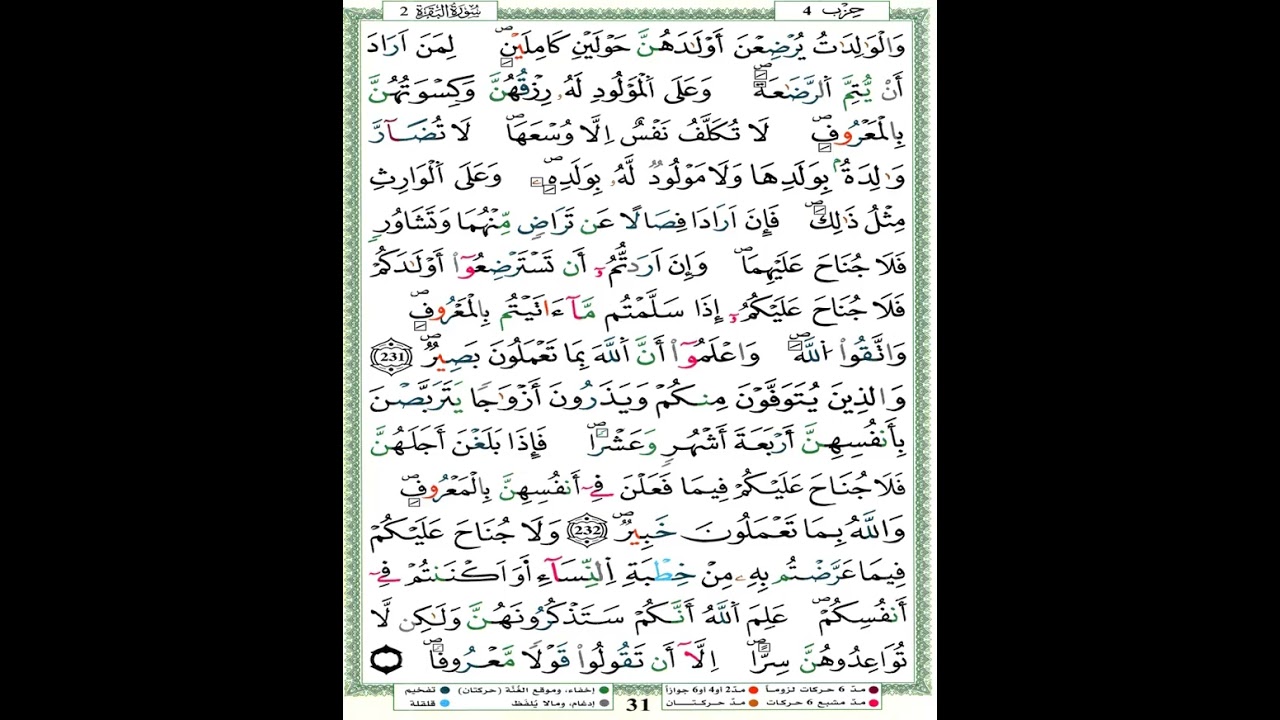 حِزْب 4
سُورَةُ الْبَقَرَةِ 2
وَالْوَٰلِدَٰتُ يُرْضِعْنَ أَوْلَٰدَهُنَّ حَوْلَيْنِ كَامِلَيْنِۖ لِمَنَ اَرَادَ
أَنْ يُّتِمَّ اَ۬لرَّضَٰعَةَۖ وَعَلَى اَ۬لْمَوْلُودِ لَهُۥ رِزْقُهُنَّ وَكِسْوَتُهُنَّ
بِالْمَعْرُوفِۖ لَا تُكَلَّفُ نَفْسٌ اِلَّا وُسْعَهَاۖ لَا تُضَآرَّ
وَٰلِدَةُۢ بِوَلَدِهَا وَلَا مَوْلُودٞ لَّهُۥ بِوَلَدِهِۦۖ وَعَلَى اَ۬لْوَارِثِ
مِثْلُ ذَٰلِكَۖ فَإِنَ اَرَادَا فِصَالًا عَن تَرَاضٖ مِّنْهُمَا وَتَشَاوُرٖ
فَلَا جُنَاحَ عَلَيْهِمَاۖ وَإِنَ اَرَدتُّمُۥٓ أَن تَسْتَرْضِعُوٓاْ أَوْلَٰدَكُمْ
فَلَا جُنَاحَ عَلَيْكُمُۥٓ إِذَا سَلَّمْتُم مَّآ ءَاتَيْتُم بِالْمَعْرُوفِۖ
وَاتَّقُواْ اُ۬للَّهَۖ وَاعْلَمُوٓاْ أَنَّ اَ۬للَّهَ بِمَا تَعْمَلُونَ بَصِيرٞۖ 231
وَالذِينَ يُتَوَفَّوْنَ مِنكُمْ وَيَذَرُونَ أَزْوَٰجٗا يَتَرَبَّصْنَ
بِأَنفُسِهِنَّ أَرْبَعَةَ أَشْهُرٖ وَعَشْراٗۖ فَإِذَا بَلَغْنَ أَجَلَهُنَّ
فَلَا جُنَاحَ عَلَيْكُمْ فِيمَا فَعَلْنَ فِےٓ أَنفُسِهِنَّ بِالْمَعْرُوفِۖ
وَاللَّهُ بِمَا تَعْمَلُونَ خَبِيرٞۖ 232 وَلَا جُنَاحَ عَلَيْكُمْ
فِيمَا عَرَّضْتُم بِهِۦ مِنْ خِطْبَةِ اِ۬لنِّسَآءِ اَوَ اَكْنَنتُمْ فِےٓ
أَنفُسِكُمْۖ عَلِمَ اَ۬للَّهُ أَنَّكُمْ سَتَذْكُرُونَهُنَّ وَلَٰكِن لَّا
تُوَاعِدُوهُنَّ سِرّاًۖ اِلَّآ أَن تَقُولُواْ قَوْلٗا مَّعْرُوفاٗۖ
مدّ 6 حركات لزوماً مدّ 2 أو 4 أو 6 جوازاً إخفاء، ومواقع الغُنَّة (حركتان) تفخيم
مدّ مشبع 6 حركات مدّ حركتان إدغام، ومالا يُلفَظ قلقلة
31